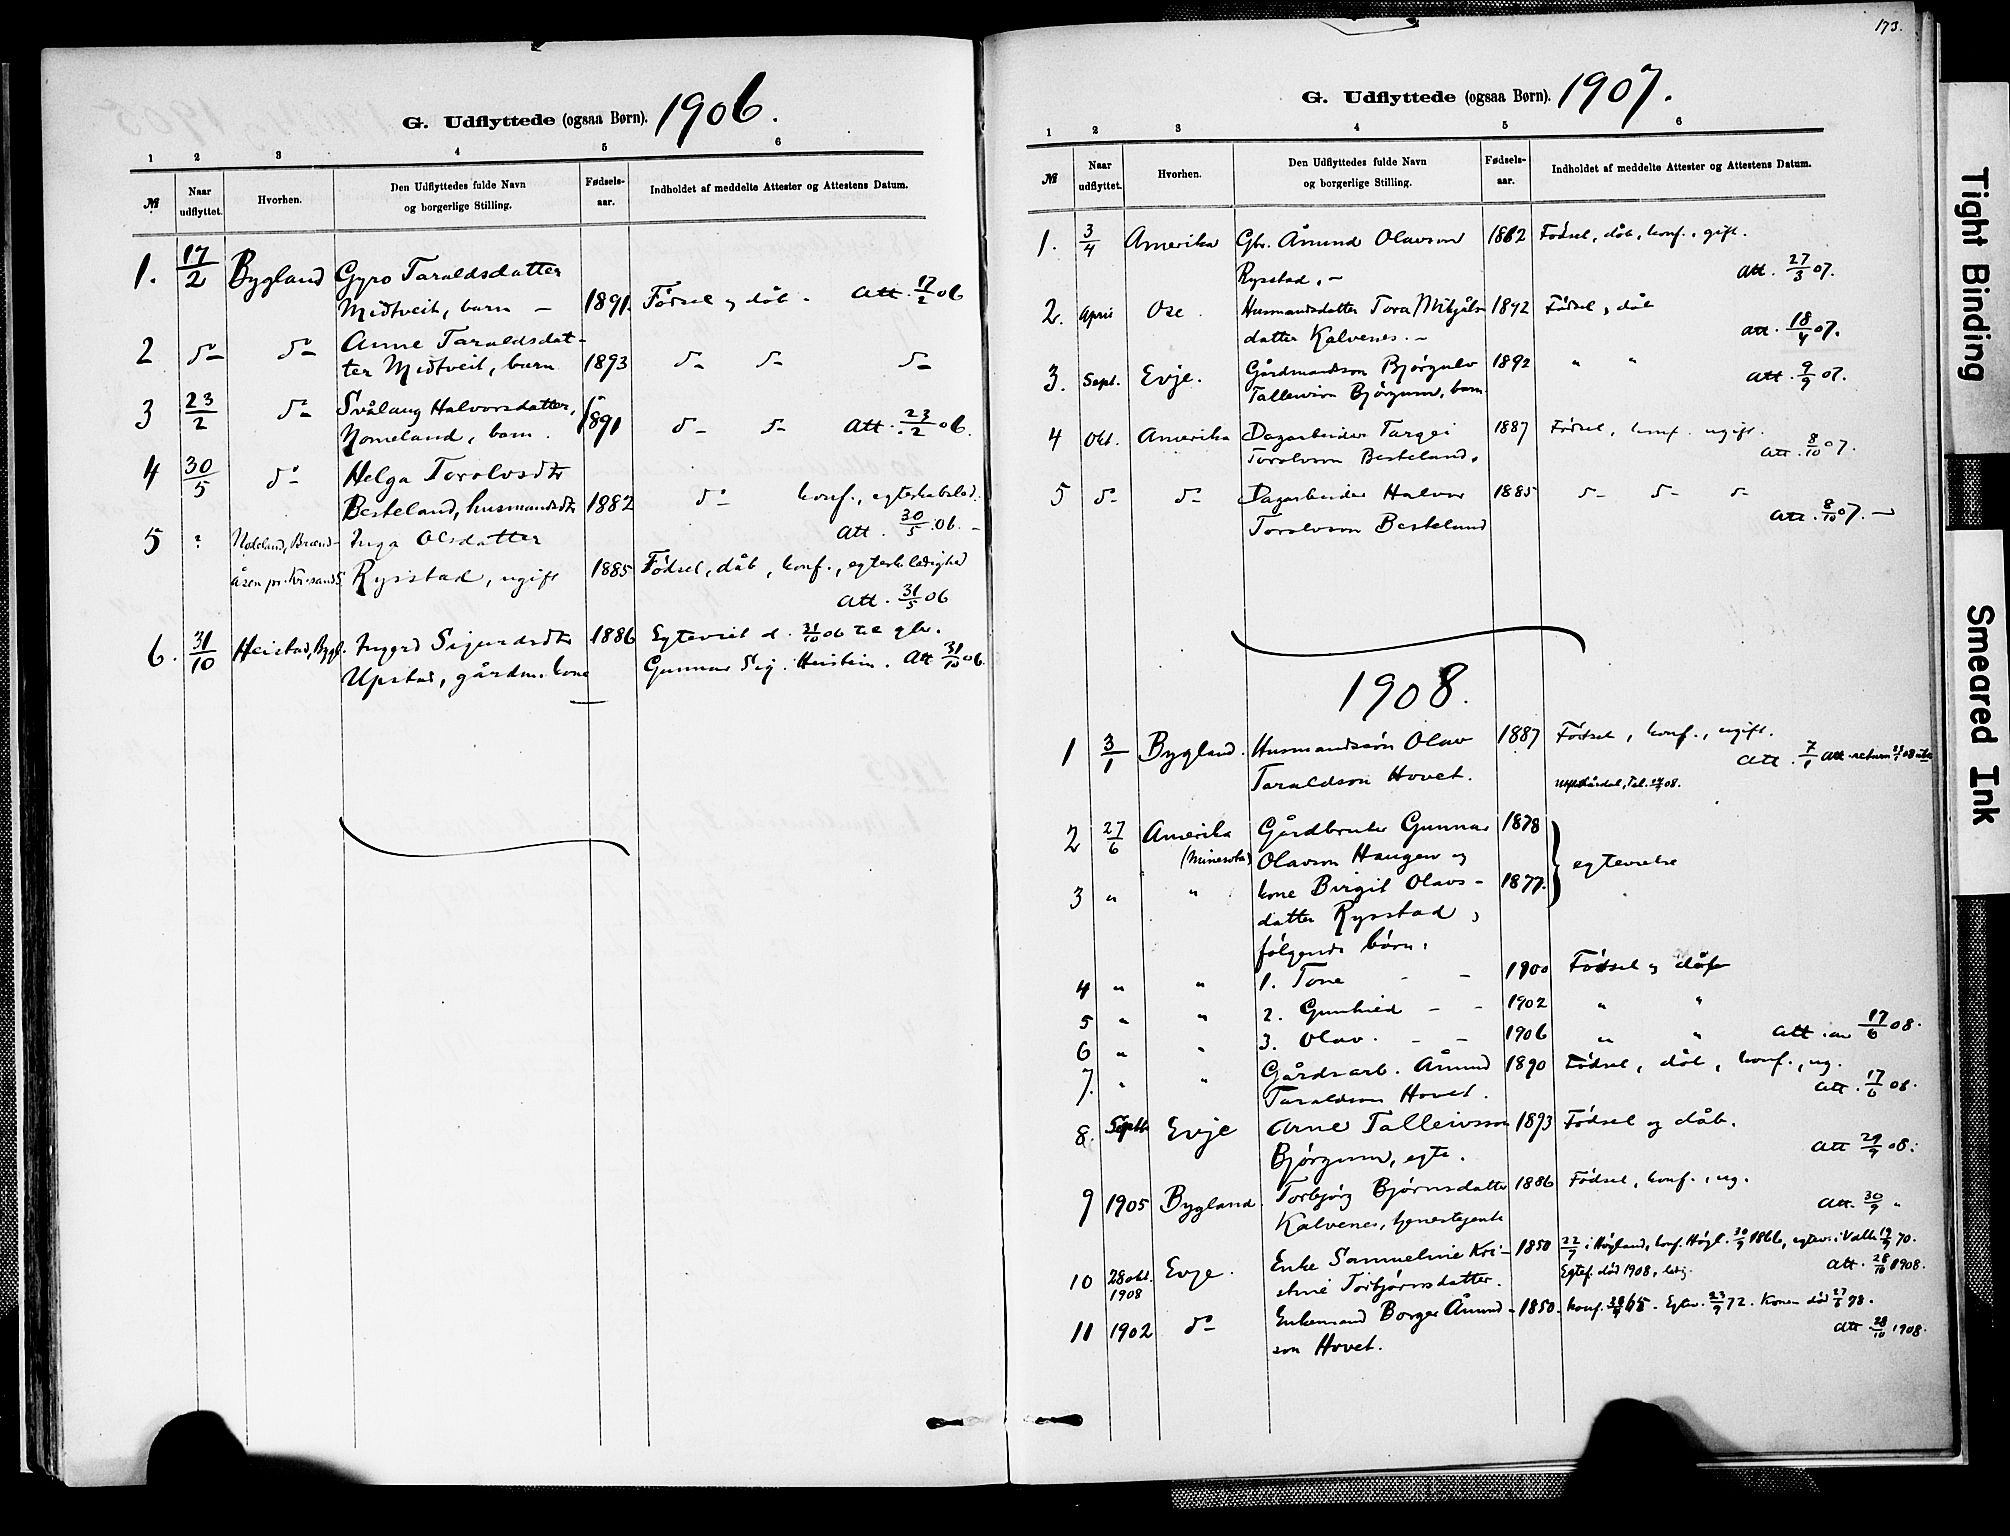 G. Udflyttede (ogsaa Børn). 1906.
1 2 3 4 5 6
№ Naar udflyttet. Hvorhen. Den Udflyttedes fulde Navn og borgerlige Stilling. Fødsels-aar. Indholdet af meddelte Attester og Attestens Datum.
1. 17/2 Bygland Gyro Taraldsdatter
Midtveit, barn – 1891. Fødsel og dåb. Att. 17/2 06
2 do do Anne Taraldsdat-
ter Midtveit, barn 1893 do do do
3 23/2 do Svålaug Halvorsdatter,
Nomeland, barn. 1891 do do Att. 23/2 06.
4 30/5 do Helga Torolvsdtr
Besteland, husmandsdtr 1882 do konf., egteskabsled.
Att. 30/5 06. –
5 ? Nodeland, Brænd- Inga Olsdatter
åsen pr. Kr.sand S. Rysstad, ugift 1885 Fødsel, dåb, konf., egteskb.ledighed
Att. 31/5 06
6. 31/10 Heistad, Bygl. Ingerd Sigurdsdtr 1886 Egteviet d. 31/10 06 til gbr.
Upstad, gårdm. kone Gunnar Sig. Heistein. Att 31/10 06.
173.
G. Udflyttede (ogsaa Børn). 1907.
1 2 3 4 5 6
№ Naar udflyttet. Hvorhen. Den Udflyttedes fulde Navn og borgerlige Stilling. Fødsels-aar. Indholdet af meddelte Attester og Attestens Datum.
1. 3/4 Amerika Gbr. Åmund Olavson 1862 Fødsel, dåb, konf., gift.
Rysstad, – Att. 27/3 07.
2. April Ose. Husmandsdatter Tora Mikjåls- 1892 Fødsel, dåb
datter Kalvenes. – Att. 18/4 07.
3. Sept. Evje. Gårdmandsøn Bjørgulv 1892 " "
Talleivson Bjørgum, barn Att. 9/9 07.
4 Okt. Amerika Dagarbeider Targei 1887 Fødsel, konf. ugift.
Torolvson Besteland. Att. 8/10 07.
5 do do Dagarbeider Halvor 1885 do do do
Torolvson Besteland Att. 8/10 07. –
1908.
1 3/1 Bygland. Husmandssøn Olav 1887 Fødsel, konf., ugift.
Taraldson Hovet. Att. 7/1 Att. return
2 27/6 Amerika Gårdbruker Gunnar 1878
(Minesota) Olavson Haugen og
egtevielse
3 " " kone Birgit Olavs- 1877.
datter Rysstad,
følgende børn:
4 " " 1. Tone – – 1900 Fødsel og dåb
5 " " 2. Gunhild – – 1902 " "
6 " " 3. Olav. – – 1906 " " Att. av 17/6 08.
7. " " Gårdsarb. Åmund 1890 Fødsel, dåb, konf., ug.
Taraldson Hovet. Att. 17/6 08.
8. Septb Evje Arne Talleivsson 1893 Fødsel og dåb.
Bjørgum, egte. Att 29/9 08.
9 1905 Bygland. Torbjørg Bjørnsdatter 1886 Fødsel, konf., ug.
Kalvenes, tjenestejente Att. 30/9 "
10 28 okt. 1908 Evje. Enke Samueline Kri- 1850 22/7 i Høgland, konf. Høgl. 30/9 1866, egtev. i Valle 19/9 70.
stine Torbjørnsdatter. Egtef. død 1908, ledig. Att. 28/10 1908.
11 1902 do Enkemand Borger Åmund- 1850. konf. 65. Egtev. 23/9 72. Konen død 27/6 98.
son Hovet. Att 28/10 1908.
Tight Binding
Smeared Ink